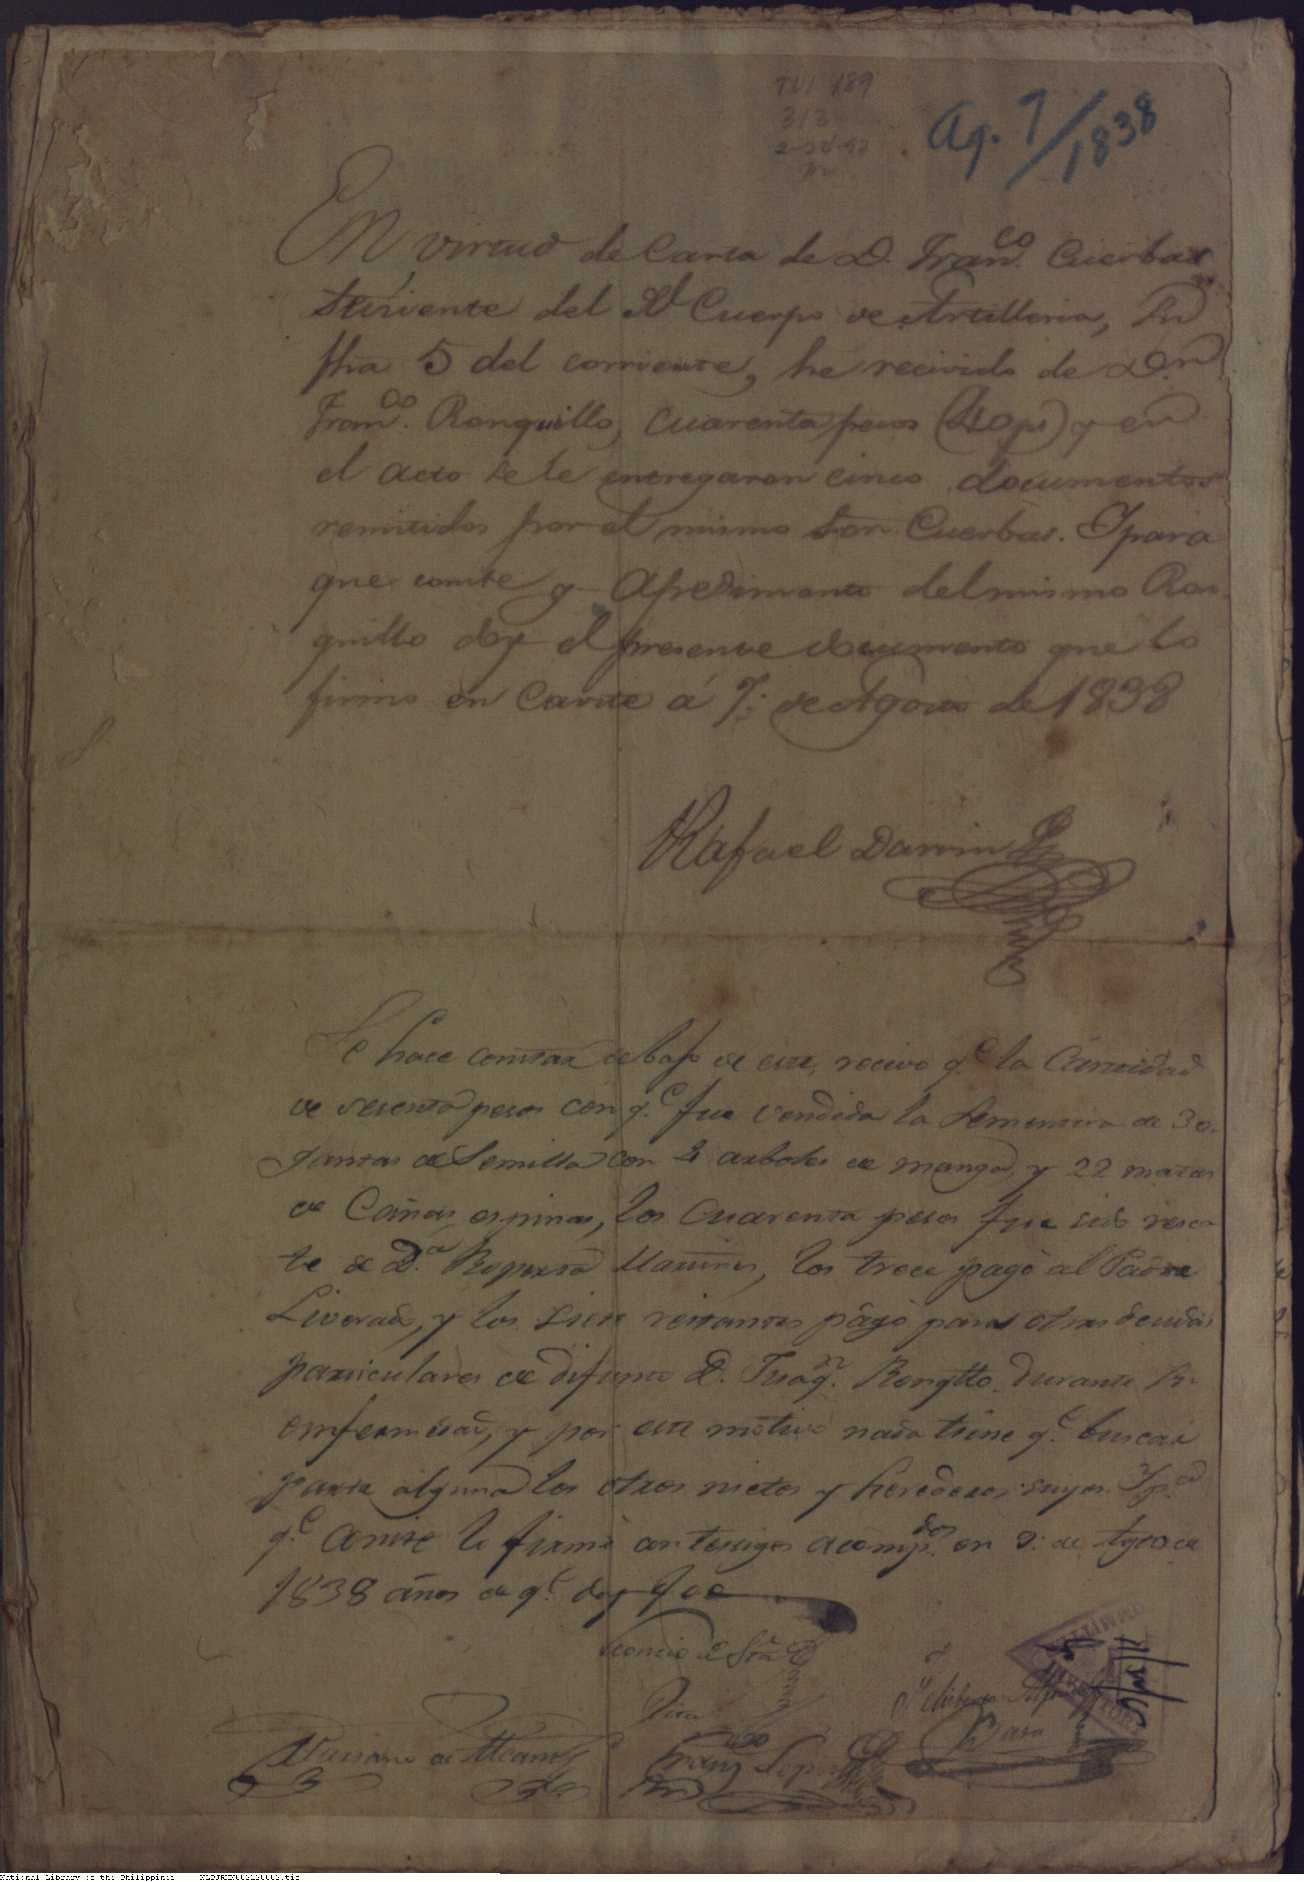 Ag. 7/1838
En virtud de Carta de D. Fran.co Cuerbas
Teniente del Rl Cuerpo de Artilleria, su
fha 5 del corriente, he recivido de Dn
Fran.co Ronquillo, cuarenta pesos (40 ps) y en
el acto se le entregaron cinco documentos
remitidos por el mismo Sor. Cuerbas. Y para
que conste y a pedimento del mismo Ron-
quillo doy el presente documento que lo
firmo en Cavite á 7. de Agosto de 1838
Rafael Darvin
Se hace constar debajo de este recivo q.e la Cantidad
de sesenta pesos con q.e fue vendida la Sementera de 30.
gantas de Semilla con 2 arboles de manga, y 22 matas
de Cañas espinas, los cuarenta pesos fue sido resca-
te de D.a Martines, los trece pagó al Padre
Liverad, y los siete restantes pagó para otras deudas
particulares de difunto D. Juaq.n Ronqllo. durante su
enfermedad, y por este motivo nada tiene q.e buscar
parte alguna los otros nietos y herederos suyos. Y p.a
q.e conste lo firmé con testigos acomp.dos en 9. de Agto de
1838 años de q.e doy fee
Leoncio de Sta
Fran.co Lopez